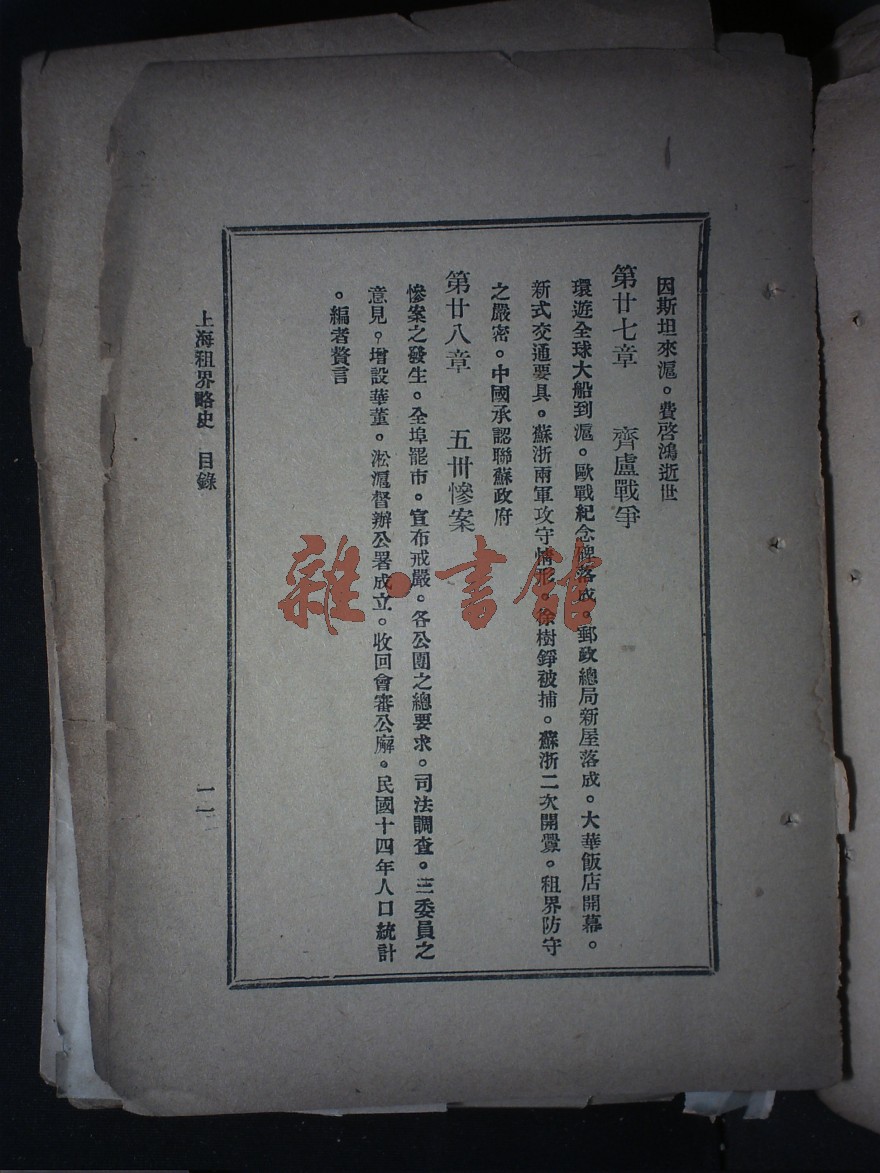 因斯坦來滬。費啓鴻逝世
第廿七章 齊盧戰爭
環遊全球大船到滬。歐戰紀念碑落成。郵政總局新屋落成。大華飯店開幕。
新式交通要具。蘇浙兩軍攻守情形。徐樹錚被捕。蘇浙二次開釁。租界防守
之嚴密。中國承認聯蘇政府
第廿八章 五卅慘案
慘案之發生。全埠罷市。宣布戒嚴。各公團之總要求。司法調查。三委員之
意見。增設華董。淞滬督辦公署成立。收回會審公廨。民國十四年人口統計
。編者贅言
上海租界略史 目錄
一一
雜·書館